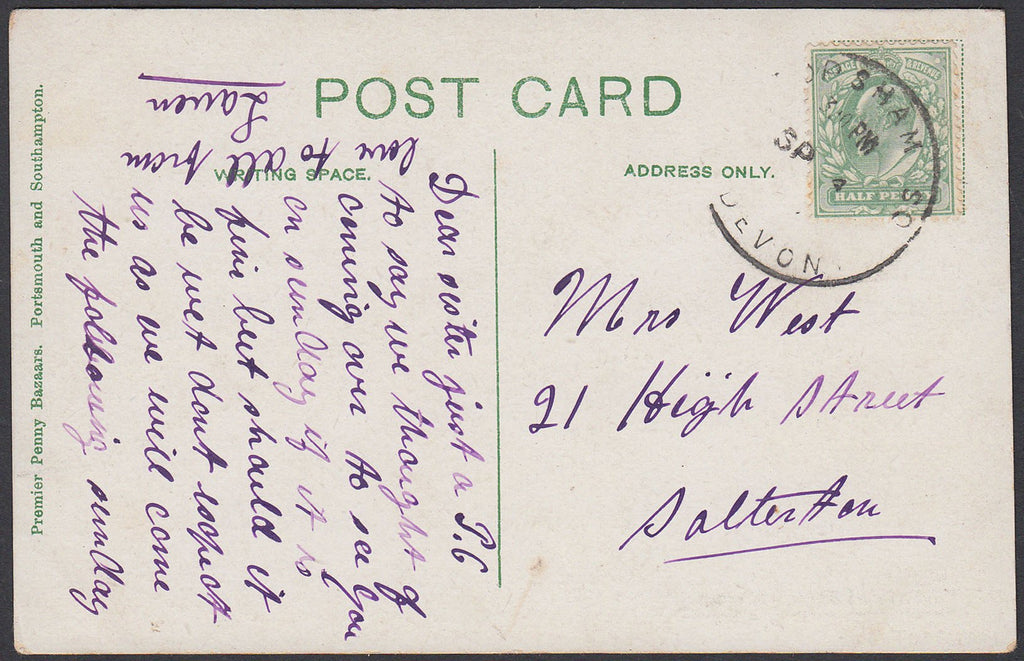 POST CARD
WRITING SPACE.
ADDRESS ONLY.
Premier Penny Bazaars. Portsmouth and Southampton.
Dear sister just a P.C
to say we thought of
coming over to see you
on sunday if it is
fine but should it
be wet dont expect
us as we will come
the following sunday
love to all from
Mrs West
21 High Street
Salterton
HALF PE
OPSHAM S.O
SP 4
DEVON